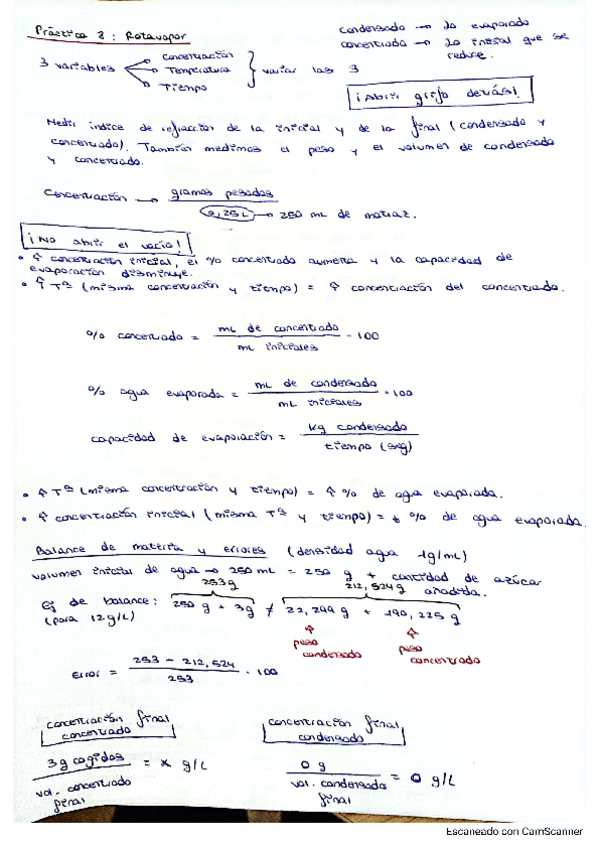 Práctica 2: Rotavapor
condensado → lo evaporado
concentrado → lo inicial que se reduce.
3 variables
concentración
Temperatura
Tiempo
variar las 3
¡Abrir grifo detrás!
Medir índice de refracción de la inicial y de la final (condensado y
concentrado). También medimos el peso y el volumen de condensado
y concentrado.
Concentración → gramos pesados
0,25L → 250 mL de matraz.
¡No abrir el vacío!
• ↑ concentración inicial, el % concentrado aumenta y la capacidad de
evaporación disminuye.
• ↑ Tª (misma concentración y tiempo) = ↑ concentración del concentrado.
% concentrado = mL de concentrado / mL iniciales · 100
% agua evaporada = mL de condensado / mL iniciales · 100
capacidad de evaporación = kg condensado / tiempo (seg)
• ↑ Tª (misma concentración y tiempo) = ↑ % de agua evaporada.
• ↑ concentración inicial (misma Tª y tiempo) = ↓ % de agua evaporada.
Balance de materia y errores (densidad agua 1g/mL)
volumen inicial de agua → 250 mL = 250 g + cantidad de azúcar
añadida.
253g
212,524g
Ej de balance: 250 g + 3g ≠ 22,299 g + 190,225 g
(para 12g/L)
peso condensado
peso concentrado
Error = 253 - 212,524 / 253 · 100
concentración final
concentrado
concentración final
condensado
3g cogidos / vol. concentrado final = x g/L
0 g / vol. condensado final = 0 g/L
Escaneado con CamScanner